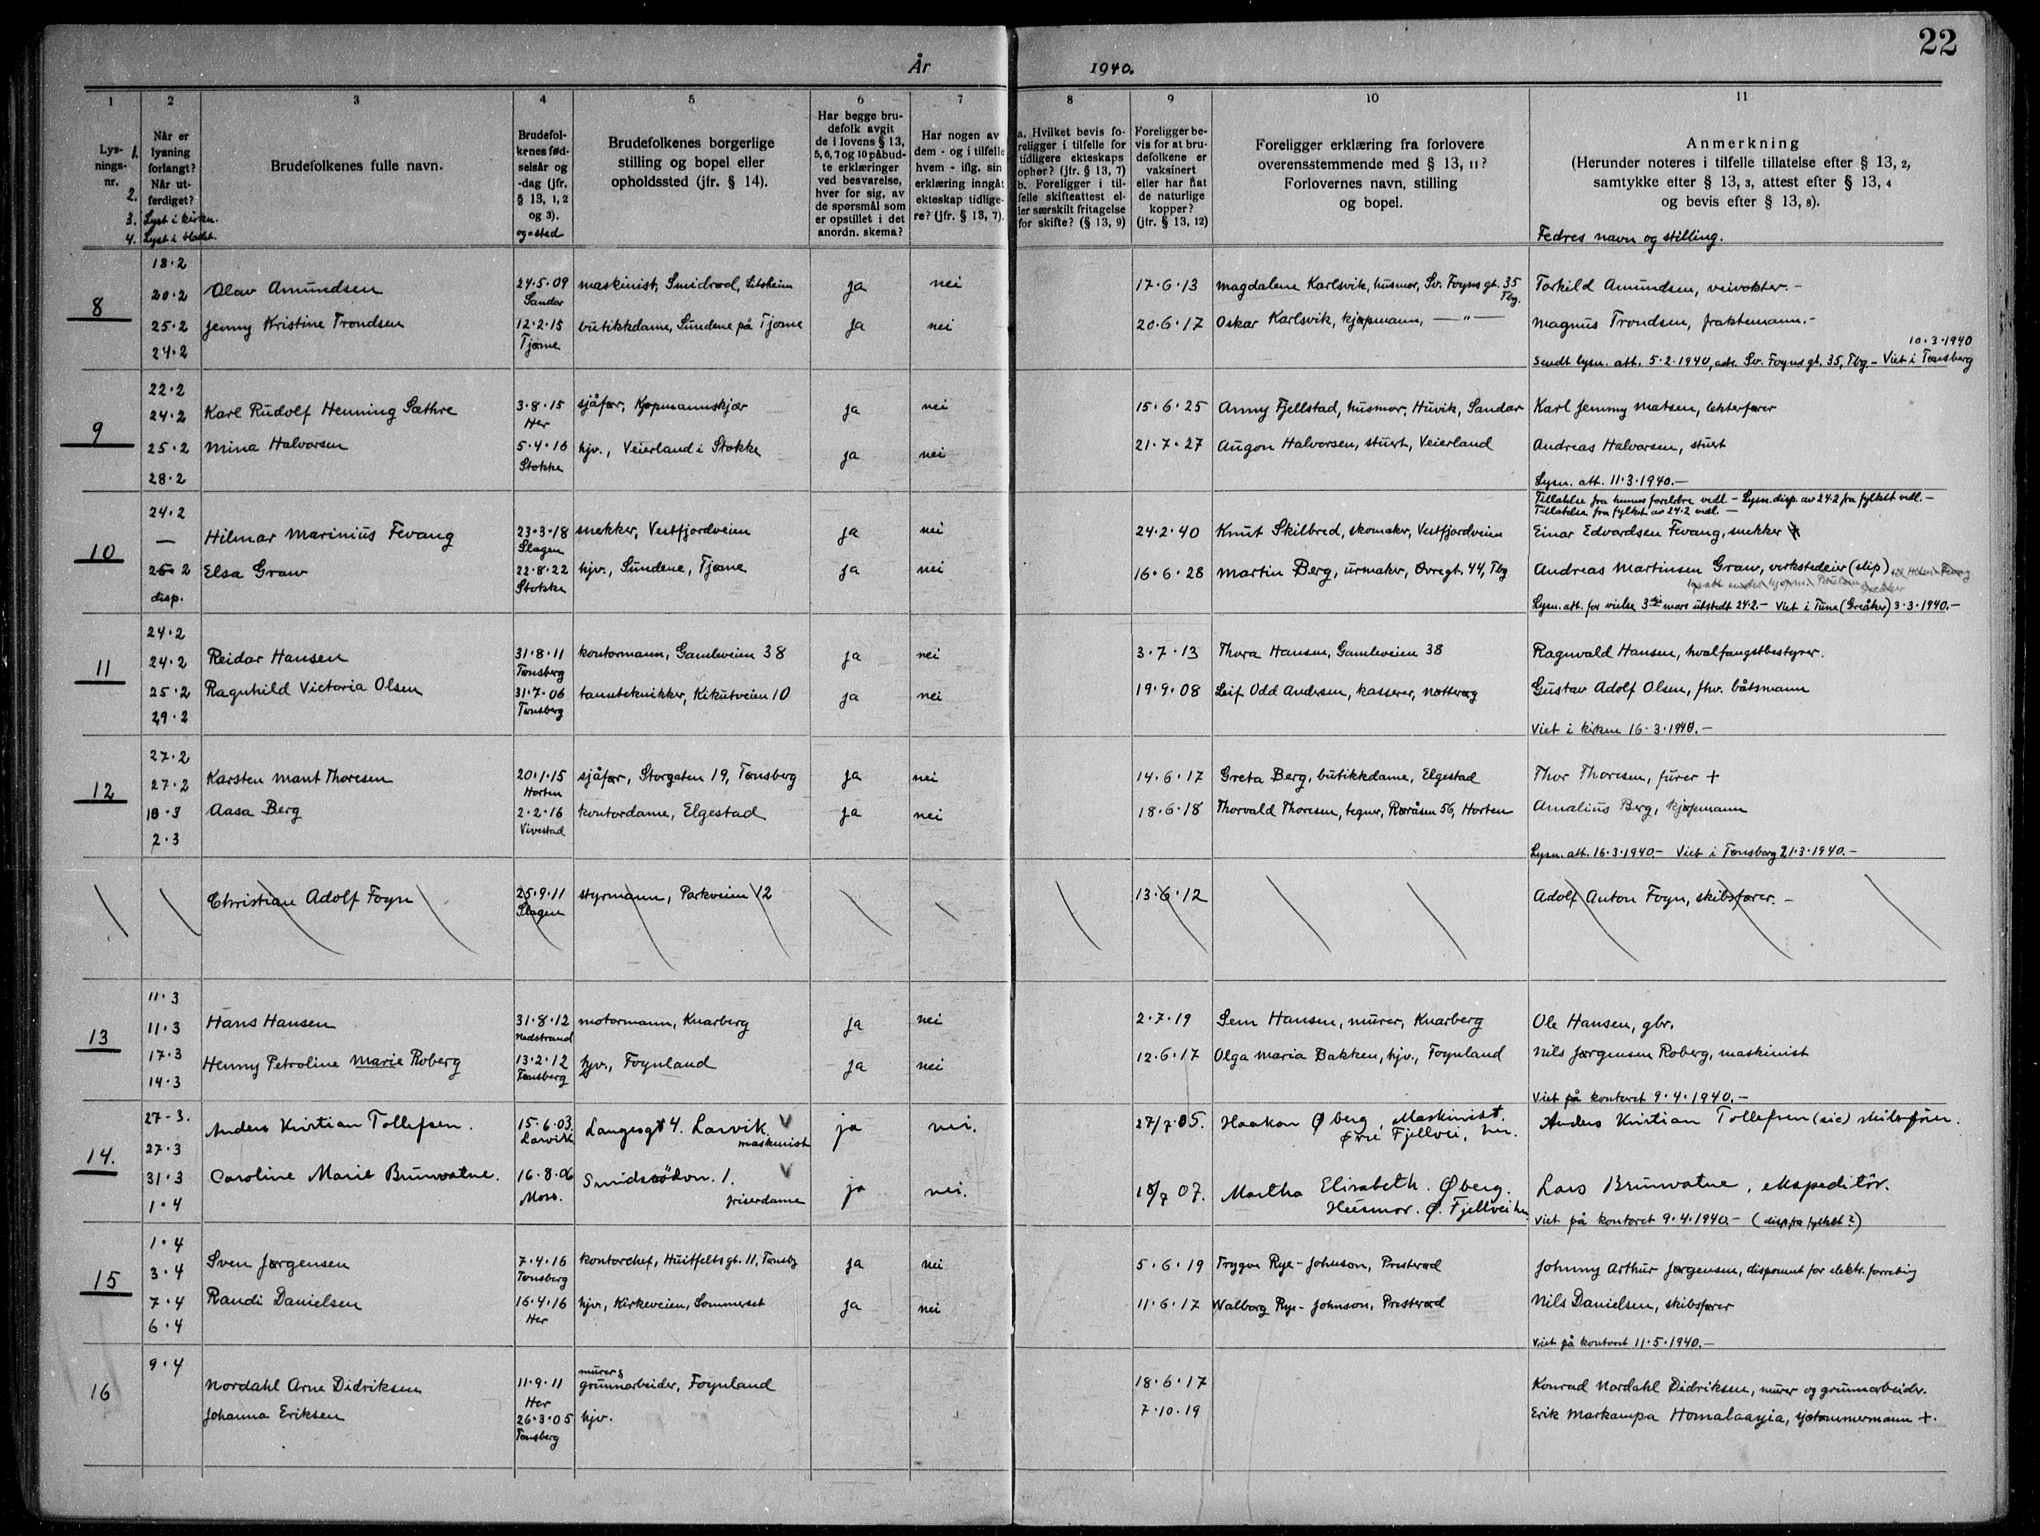 22
År 1940.
1 2 3 4 5 6 7 8 9 10 11
Lysningsnr. 1. 2. 3. 4.
Når er lysning forlangt? Når utferdiget? Lyst i kirken. Lyst i bladet.
Brudefolkenes fulle navn.
Brudefolkenes fødselsår og -dag (jfr. § 13, 1, 2 og 3). og -sted
Brudefolkenes borgerlige stilling og bopel eller opholdssted (jfr. § 14).
Har begge brudefolk avgit de i lovens § 13, 5, 6, 7 og 10 påbudte erklæringer ved besvarelse, hver for sig, av de spørsmål som er opstillet i det anordn. skema?
Har nogen av dem - og i tilfelle hvem - iflg. sin erklæring inngått ekteskap tidligere? (jfr. § 13, 7).
a. Hvilket bevis foreligger i tilfelle for tidligere ekteskaps ophør? (jfr. § 13, 7) b. Foreligger i tilfelle skifteattest eller særskilt fritagelse for skifte? (§ 13, 9)
Foreligger bevis for at brudefolkene er vaksinert eller har hat de naturlige kopper? (jfr. § 13, 12)
Foreligger erklæring fra forlovere overensstemmende med § 13, 11? Forlovernes navn, stilling og bopel.
Anmerkning (Herunder noteres i tilfelle tillatelse efter § 13, 2, samtykke efter § 13, 3, attest efter § 13, 4 og bevis efter § 13, 8).
Fedres navn og stilling.
18.2
8 20.2 Olav Amundsen 24.5.09 Sandar maskinist, Smidrød, ja nei 17.6.13 Magdalene Karlsvik, husmor, Sv. Foyns gt. 35 Tbg. Torkild Amundsen, veivokter.-
25.2 Jenny Kristine Trondsen 12.2.15 Tjøme butikkdame, Sundene på Tjøme ja nei 20.6.17 Oskar Karlsvik, kjøpmann, —"— Magnus Trondsen, fraktemann.-
24.2 10.3.1940
Sendt lysn. att. 5.2.1940, adr. Sv. Foyns gt. 35, Tbg - Viet i Tønsberg
22.2
9 24.2 Karl Rudolf Henning Sæthre 3.8.15 Her sjåfør, Kjøpmannskjær ja nei 15.6.25 Anny Fjellstad, husmor, Huvik, Sandar Karl Jemmy Matsen, lekterfører
25.2 Mina Halvorsen 5.4.16 Stokke hjv., Veierland i Stokke ja nei 21.7.27 Augon Halvorsen, stuert, Veierland Andreas Halvorsen, stuert
28.2 Lysn. att. 11.3.1940.-
Tillatelse fra hennes foreldre vedl. - Lysn.disp. av 24.2 fra fylket vedl.-
Tillatelse fra fylket av 24.2 vedl. -
24.2
10 — Hilmar Marinius Fevang 23.3.18 Slagen snekker, Vestfjordveien ja nei 24.2.40 Knut Skilbred, skomaker, Vestfjordveien Einar Edvardsen Fevang, snekker
25.2 Elsa Grav 22.8.22 Stokke hjv., Sundene, Tjøme ja nei 16.6.28 Martin Berg, urmaker, Øvregt. 44, Tbg Andreas Martinsen Grav, verkstedeier (slip)
disp. Lysn. att. for vielse 3dje mars utstedt 24.2.- Viet i Tune (Greåker) 3.3.1940.-
24.2
11 24.2 Reidar Hansen 31.8.11 Tønsberg kontormann, Gamleveien 38 ja nei 3.7.13 Thora Hansen, Gamleveien 38 Ragnvald Hansen, hvalfangstbestyrer.
25.2 Ragnhild Victoria Olsen 31.7.06 Tønsberg tannteknikker, Kikutveien 10 ja nei 19.9.08 Leif Odd Andersen, kasserer, Nøtterøy Gustav Adolf Olsen, fhv. båtsmann
29.2 Viet i kirken 16.3.1940.-
27.2
12 27.2 Karsten Mant Thoresen 20.1.15 Horten sjåfør, Storgaten 19, Tønsberg ja nei 14.6.17 Greta Berg, butikkdame, Elgestad Thor Thoresen, furer +
10.3 Aasa Berg 2.2.16 Vivestad kontordame, Elgestad ja nei 18.6.18 Thorvald Thoresen, tegner, Røråsen 56, Horten Amalius Berg, kjøpmann
2.3 Lysn. att. 16.3.1940.- Viet i Tønsberg 21.3.1940.-
Christian Adolf Foyn 25.9.11 Slagen styrmann, Parkveien 12 13.6.12 Adolf Anton Foyn, skibsfører. -
11.3
13 11.3 Hans Hansen 31.8.12 Nedstrand motormann, Knarberg ja nei 2.7.19 Sem Hansen, murer, Knarberg Ole Hansen, gbr.
17.3 Henny Petroline Marie Roberg 13.2.12 Tønsberg hjv., Foynland ja nei 12.6.17 Olga Maria Bakken, hjv., Foynland Nils Jørgensen Roberg, maskinist
14.3 Viet på kontoret 9.4.1940.-
27-3.
14. 27.3 Anders Kristian Tollefsen. 15.6.03. Larvik Langesgt 4. Larvik. maskinist V ja nei. 27/7.05. Haakon Øberg, Maskinist. Øvre Fjellvei, her. Anders Kristian Tollefsen (sic) skibsfører.
31.3 Caroline Marie Brunvatne. 16.8.06 Moss. Smidsrödvn. 1. friserdame V ja nei. 18/7 07. Martha Elisabeth. Øberg. Husmor. Ø. Fjellvei her Lars Brunvatne, ekspeditör.
1.4 Viet på kontoret 9.4.1940.- (disp. fra fylket?)
1.4
15 3.4 Sven Jørgensen 7.4.16 Tønsberg kontorchef, Huitfeltsgt. 11, Tønsbg ja nei 5.6.19 Trygve Rye-Johnson, Presterød Johnny Arthur Jørgensen, disponent for elektr. forretng
7.4 Randi Danielsen 16.4.16 Her hjv., Kirkeveien, Sommerset ja nei 11.6.17 Walborg Rye-Johnson, Presterød Nils Danielsen, skibsfører
6.4 Viet på kontoret 11.5.1940.-
9.4
16 Nordahl Arne Didriksen 11.9.11 Her murer & grunnarbeider, Foynland 18.6.17 Konrad Nordahl Didriksen, murer og grunnarbeider.
Johanna Eriksen 26.3.05 Tønsberg hjv. 7.10.19 Erik Markampa Homalaayia, sjøtømmermann +.